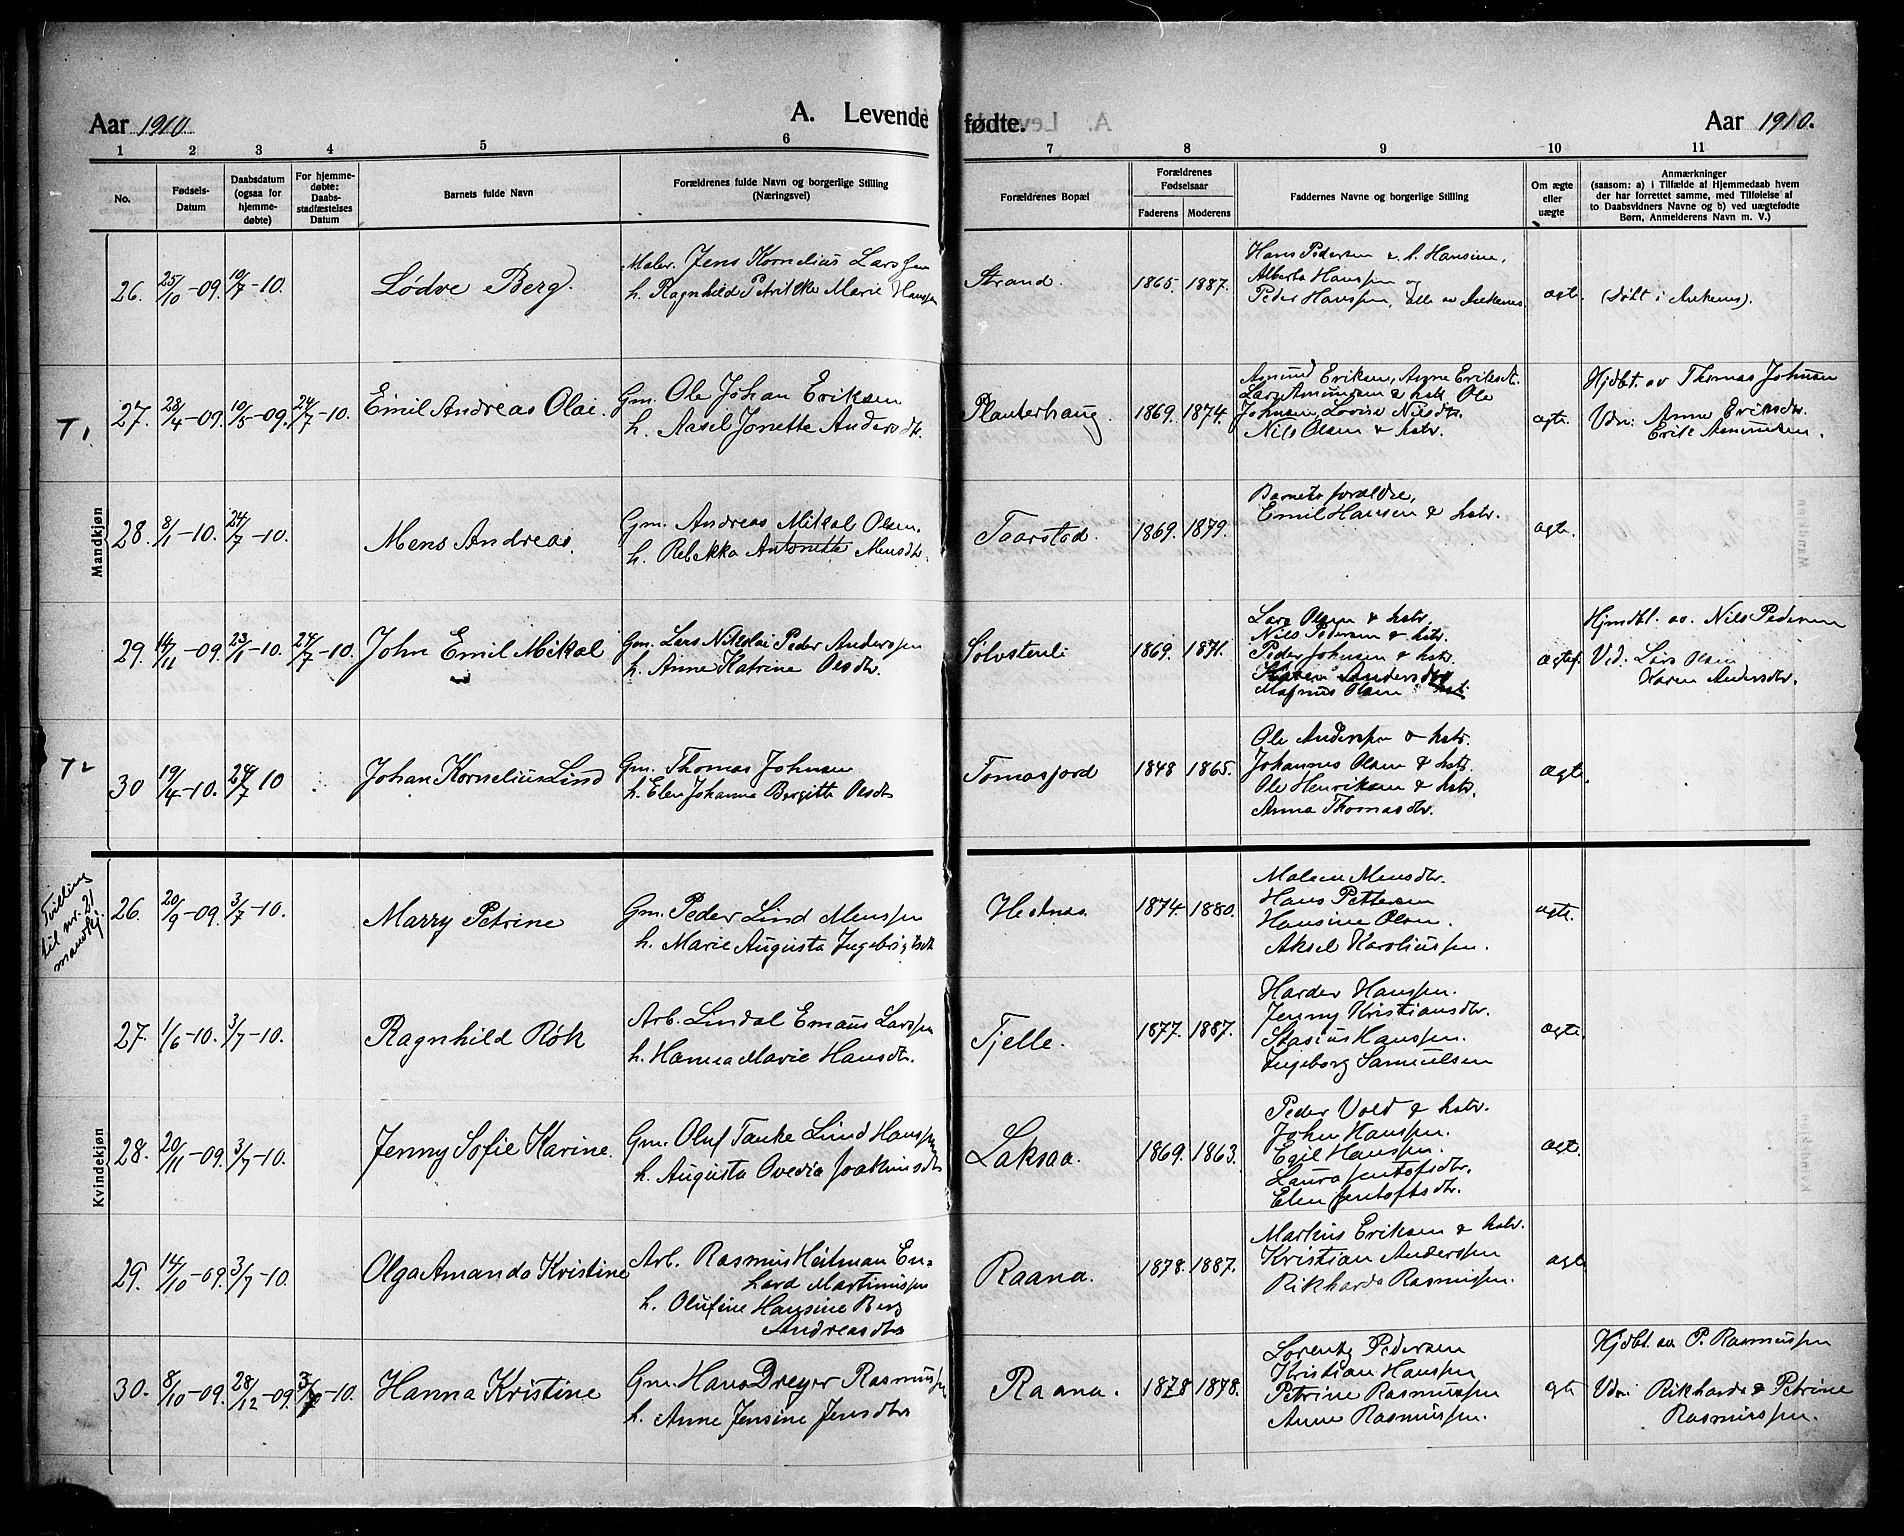 Aar 1910.
A. Levende
fødte.
Aar 1910.
1 2 3 4 5 6 7 8 9 10 11
No.
Fødsels-
Datum
Daabsdatum
(ogsaa for
hjemme-
døbte)
For hjemme-
døbte:
Daabs-
stadfæstelses
Datum
Barnets fulde Navn
Forældrenes fulde Navn og borgerlige Stilling
(Næringsvei)
Forældrenes Bopæl
Forældrenes
Fødselsaar
Faderens Moderens
Faddernes Navne og borgerlige Stilling
Om ægte
eller
uægte
Anmærkninger
(saasom: a) i Tilfælde af Hjemmedaab hvem
der har forrettet samme, med Tilføielse af
to Daabsvidners Navne og b) ved uægtefødte
Børn, Anmelderens Navn m. V.)
Mandkjøn
26. 25/10-09. 10/7-10. Lødve Berg.
Maler. Jens Kornelius Larssen
h. Ragnhild Petrikke Marie Hanssen
Strand. 1865. 1887.
Hans Pedersen & h. Hansine,
Alberta Hanssen og
Peder Hanssen, alle av Ankenes
ægte. (døbt i Ankenes).
27. 28/4-09. 10/5-09. 24/7-10. Emil Andreas Olai.
Gm. Ole Johan Eriksen
h. Aasel Jonette Andersdtr.
Planterhaug. 1869. 1874.
Amund Eriksen, Anne Eriksdt.
Lars Amundsen & hstr. Ole
Johnsen, Lovise Nilsdtr.
Nils Olsen & hstr.
ægte.
Hjdbt. av Thomas Johnsen
Vdn: Anne Eriksdtr.
Erik Asmundsen.
28. 8/1-10. 24/7-10. Mens Andreas.
Gm. Andreas Mikal Olsen.
h. Rebekka Antonette Mensdtr.
Taarstad. 1869. 1879.
Barnets forældre,
Emil Hansen & hstr.
ægte.
29. 14/11-09. 23/1-10. 24/7-10. John Emil Mikal
Gm. Lars Nikolai Peder Anderssen
h. Anne Katrine Olsdtr.
Sølvstenli 1869. 1871.
Lars Olsen & hstr.
Nils Pedersen & hstr.
Peder Johnsen & hstr.
Karen Andersdtr
Magnus Olsen
ægtef.
Hjmdbt. av. Nils Pedersen
Vid: Lars Olsen
Karen Andersdtr.
30 19/4-10. 24/7 10 Johan Kornelius Lind
Gm. Thomas Johnsen
h. Elen Johanna Bergitte Olsdtr
Tomasjord 1848 1865.
Ole Anderssen & hstr.
Johannes Olsen & hstr.
Ole Henriksen & hstr.
Anna Thomasdtr.
ægte.
Kvindekjøn
Tvilling
til nr. 21
mandkj.
26. 20/9-09. 3/7-10. Marry Petrine
Gm. Peder Lind Menssen
h. Marie Augusta Ingebrigtsdtr
Hestnes. 1874. 1880.
Malene Mensdtr.
Hans Pettersen
Hansine Olsen.
Aksel Karoliussen.
ægte.
27. 1/6-10. 3/7-10. Ragnhild Røk
Arb. Lindal Emaus Larssen
h. Hanna Marie Hansdtr.
Tjelle. 1877. 1887.
Harder Hanssen.
Jenny Kristiansdtr.
Stasius Hanssen.
Ingeborg Samuelsen
ægte.
28. 20/11-09. 3/7-10. Jenny Sofie Karine.
Gm. Oluf Tanke Lind Hanssen
h. Augusta Ovedia Joakimsdtr
Laksaa. 1869. 1863.
Peder Vold & hstr.
John Hanssen.
Egil Hanssen.
Laura Jentofsdtr.
Elen Jentoftsdtr.
ægte.
29. 14/10-09. 3/7-10. Olga Amanda Kristine
Arb. Rasmus Heitman En-
hard Martinussen
h. Olufine Hansine Berg
Andreasdtr
Raana. 1878. 1887.
Markus Eriksen & hstr.
Kristian Anderssen
Rikharda Rasmussen.
ægte.
30. 8/10-09. 28/12-09. 3/7-10. Hanna Kristine
Gm. Hans Dreyer Rasmussen
h. Anne Jensine Jensdtr
Raana. 1878 1878.
Lorentz Pedersen
Kristian Hanssen
Petrine Rasmussen
Anne Rasmussen.
ægte
Hjdbt. av P. Rasmussen
Vdn: Rikharda & Petrine
Rasmussen.